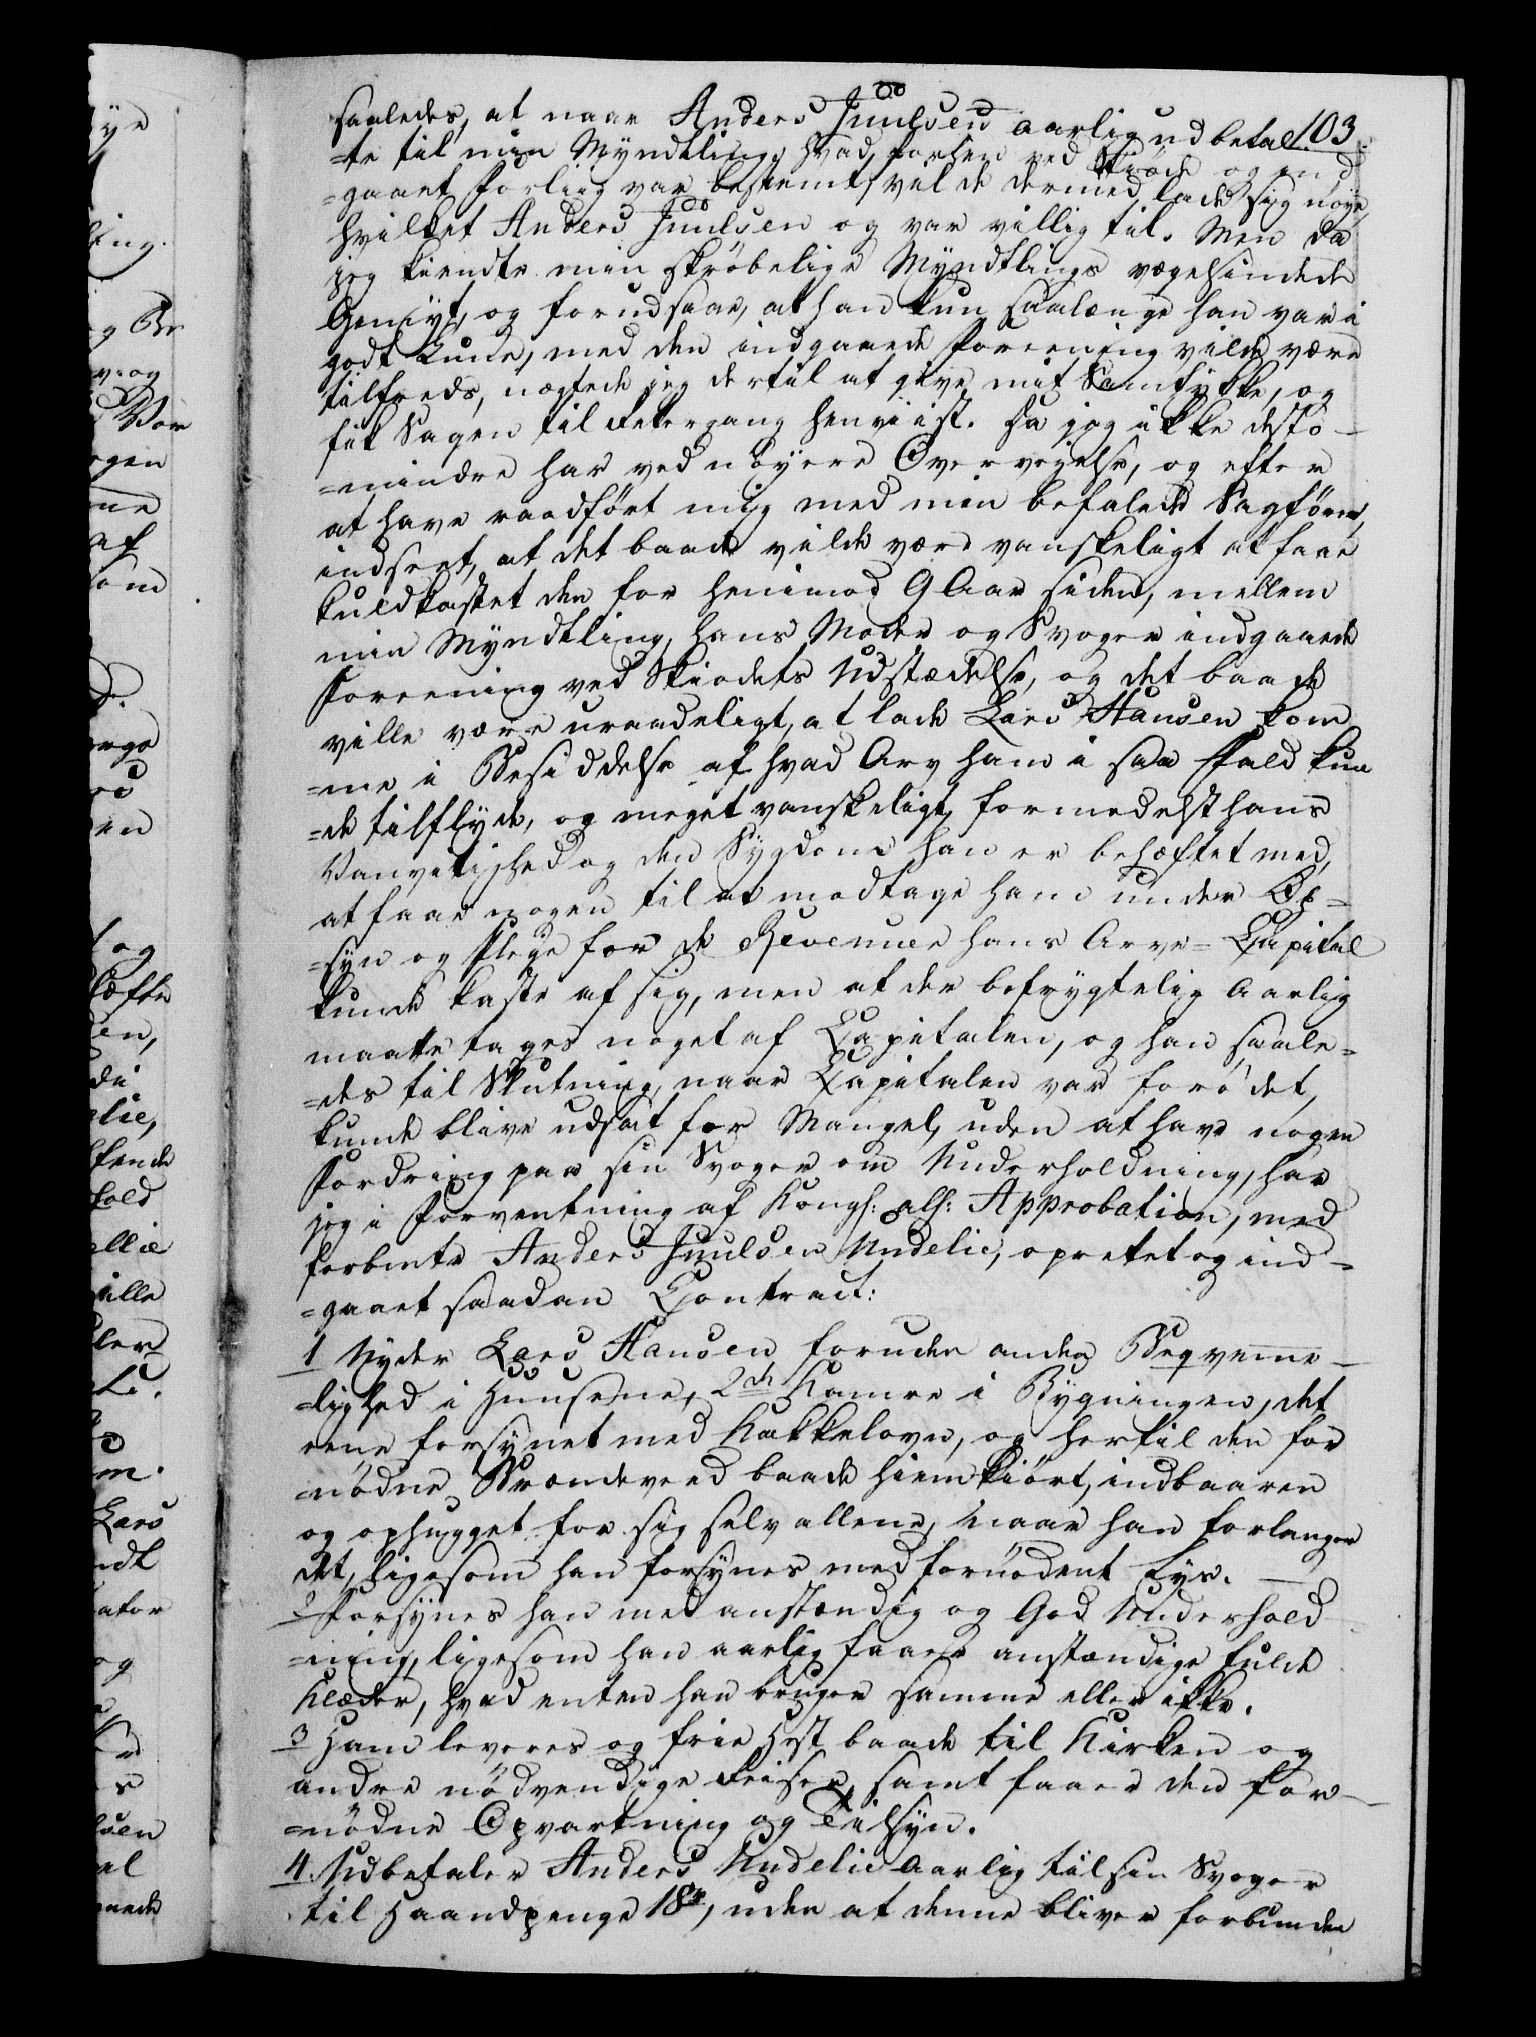 103.
saaledes, at naar Anders Juulsen aarlig udbetal-
=te til min Myndtling, hvad forhen ved Skiöde og ind
=gaaet Forliig var bestemt, vilde dermed lade sig nøye,
hvilket Anders Juulsen og var villig til. Men da
jeg kiendte min skrøbelige Myndtlings vegelsindede
Gemyt, og forudsaae, at han kun saalænge han var i
godt Lune, med den indgaaede Foreening vilde være
tilfreds, nægtede jeg dertil at give mit Samtykke, og
fik Sagen til Rettergang henviist. Da jeg ikke desto-
=mindre har ved nöyere Overveyelse, og efter
at have raadfört mig med min befalede Sagförer,
indseet, at det baade vilde være vanskeligt at faae
kuldkastet den for henimod 9 Aar siden, mellem
min Myndtling, hans Moder og Svoger indgaaede
Foreening ved Skiödets Udstædelse, og det baade
ville være uraadeligt, at lade Lars Hansen kom
=me i Besiddelse af hvad Arv ham i saa Fald kun
=de tilflyde, og meget vanskeligt, formedelst hans
Vanvitighed og den Sygdom han er behæftet med,
at faae nogen til at modtage ham under Op=
=syn og Pleye for de Revenuer hans Arve-Capital
kunde kaste af sig, men at der befrygtelig aarlig
maatte tages noget af Capitalen, og han saale=
=des til Slutning, naar Capitalen var forödet,
kunde blive udsat for Mangel, uden at have nogen
Fordring paa sin Svoger om Underholdning, har
jeg i Forventning af Kongl: all: Approbation, med
forbemte Anders Juulsen Undelie, oprettet og ind=
=gaaet saadan Contract:
1 Nyder Lars Hansen foruden anden Beqvemme-
=lighed i Huusene, 2de Kamre i Bygningen, det
eene forsynet med Kakkelovn, og hertil den for
=nödne Brændeveed baade hiemkiört, indbaaren
og ophugget for sig selv allene, naar han forlanger
det, ligesom han forsynes med fornödent Lys. —
2 Forsynes han med anstændig og God Underhold
=ning, ligesom han aarlig faaer anstændige fulde
Klæder, hvad enten han bruger samme eller ikke.
3 Ham leveres og frie Hest baade til Kirken og
andre nödvendige Reiser, samt faaer den for-
=nödne Opvartning og Tilsyn.
4. Udbetaler Anders Undelie aarlig til sin Svoger
til Haandpenge 18 , uden at denne bliver forbunden